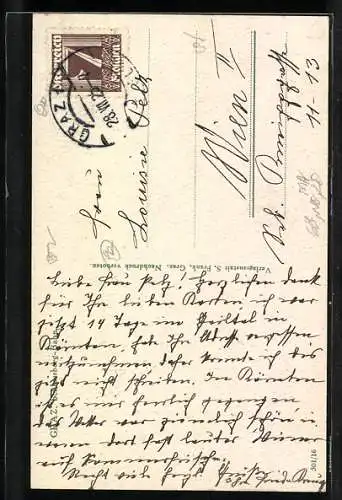 GRAZ
28.VIII.25
Frau
Louise Pelz
Wien II
11-13
Verlagsanstalt S. Frank, Graz. Nachdruck verboten.
501/16
GRAZ
Liebe Frau Pelz! Herzlichen Dank
für Ihre lieben Karten ich war
jetzt 14 Tage im Gailtal in
Kärnten, hab Ihre Adresse vergessen
mitzunehmen daher konnte ich bis
jetzt nicht schreiben. In Kärnten
ist es mir herrlich gegangen
das Wetter war ziemlich schön
waren dort fast lauter Wiener
auf Sommerfrische.
Recht viele herzl. Grüße